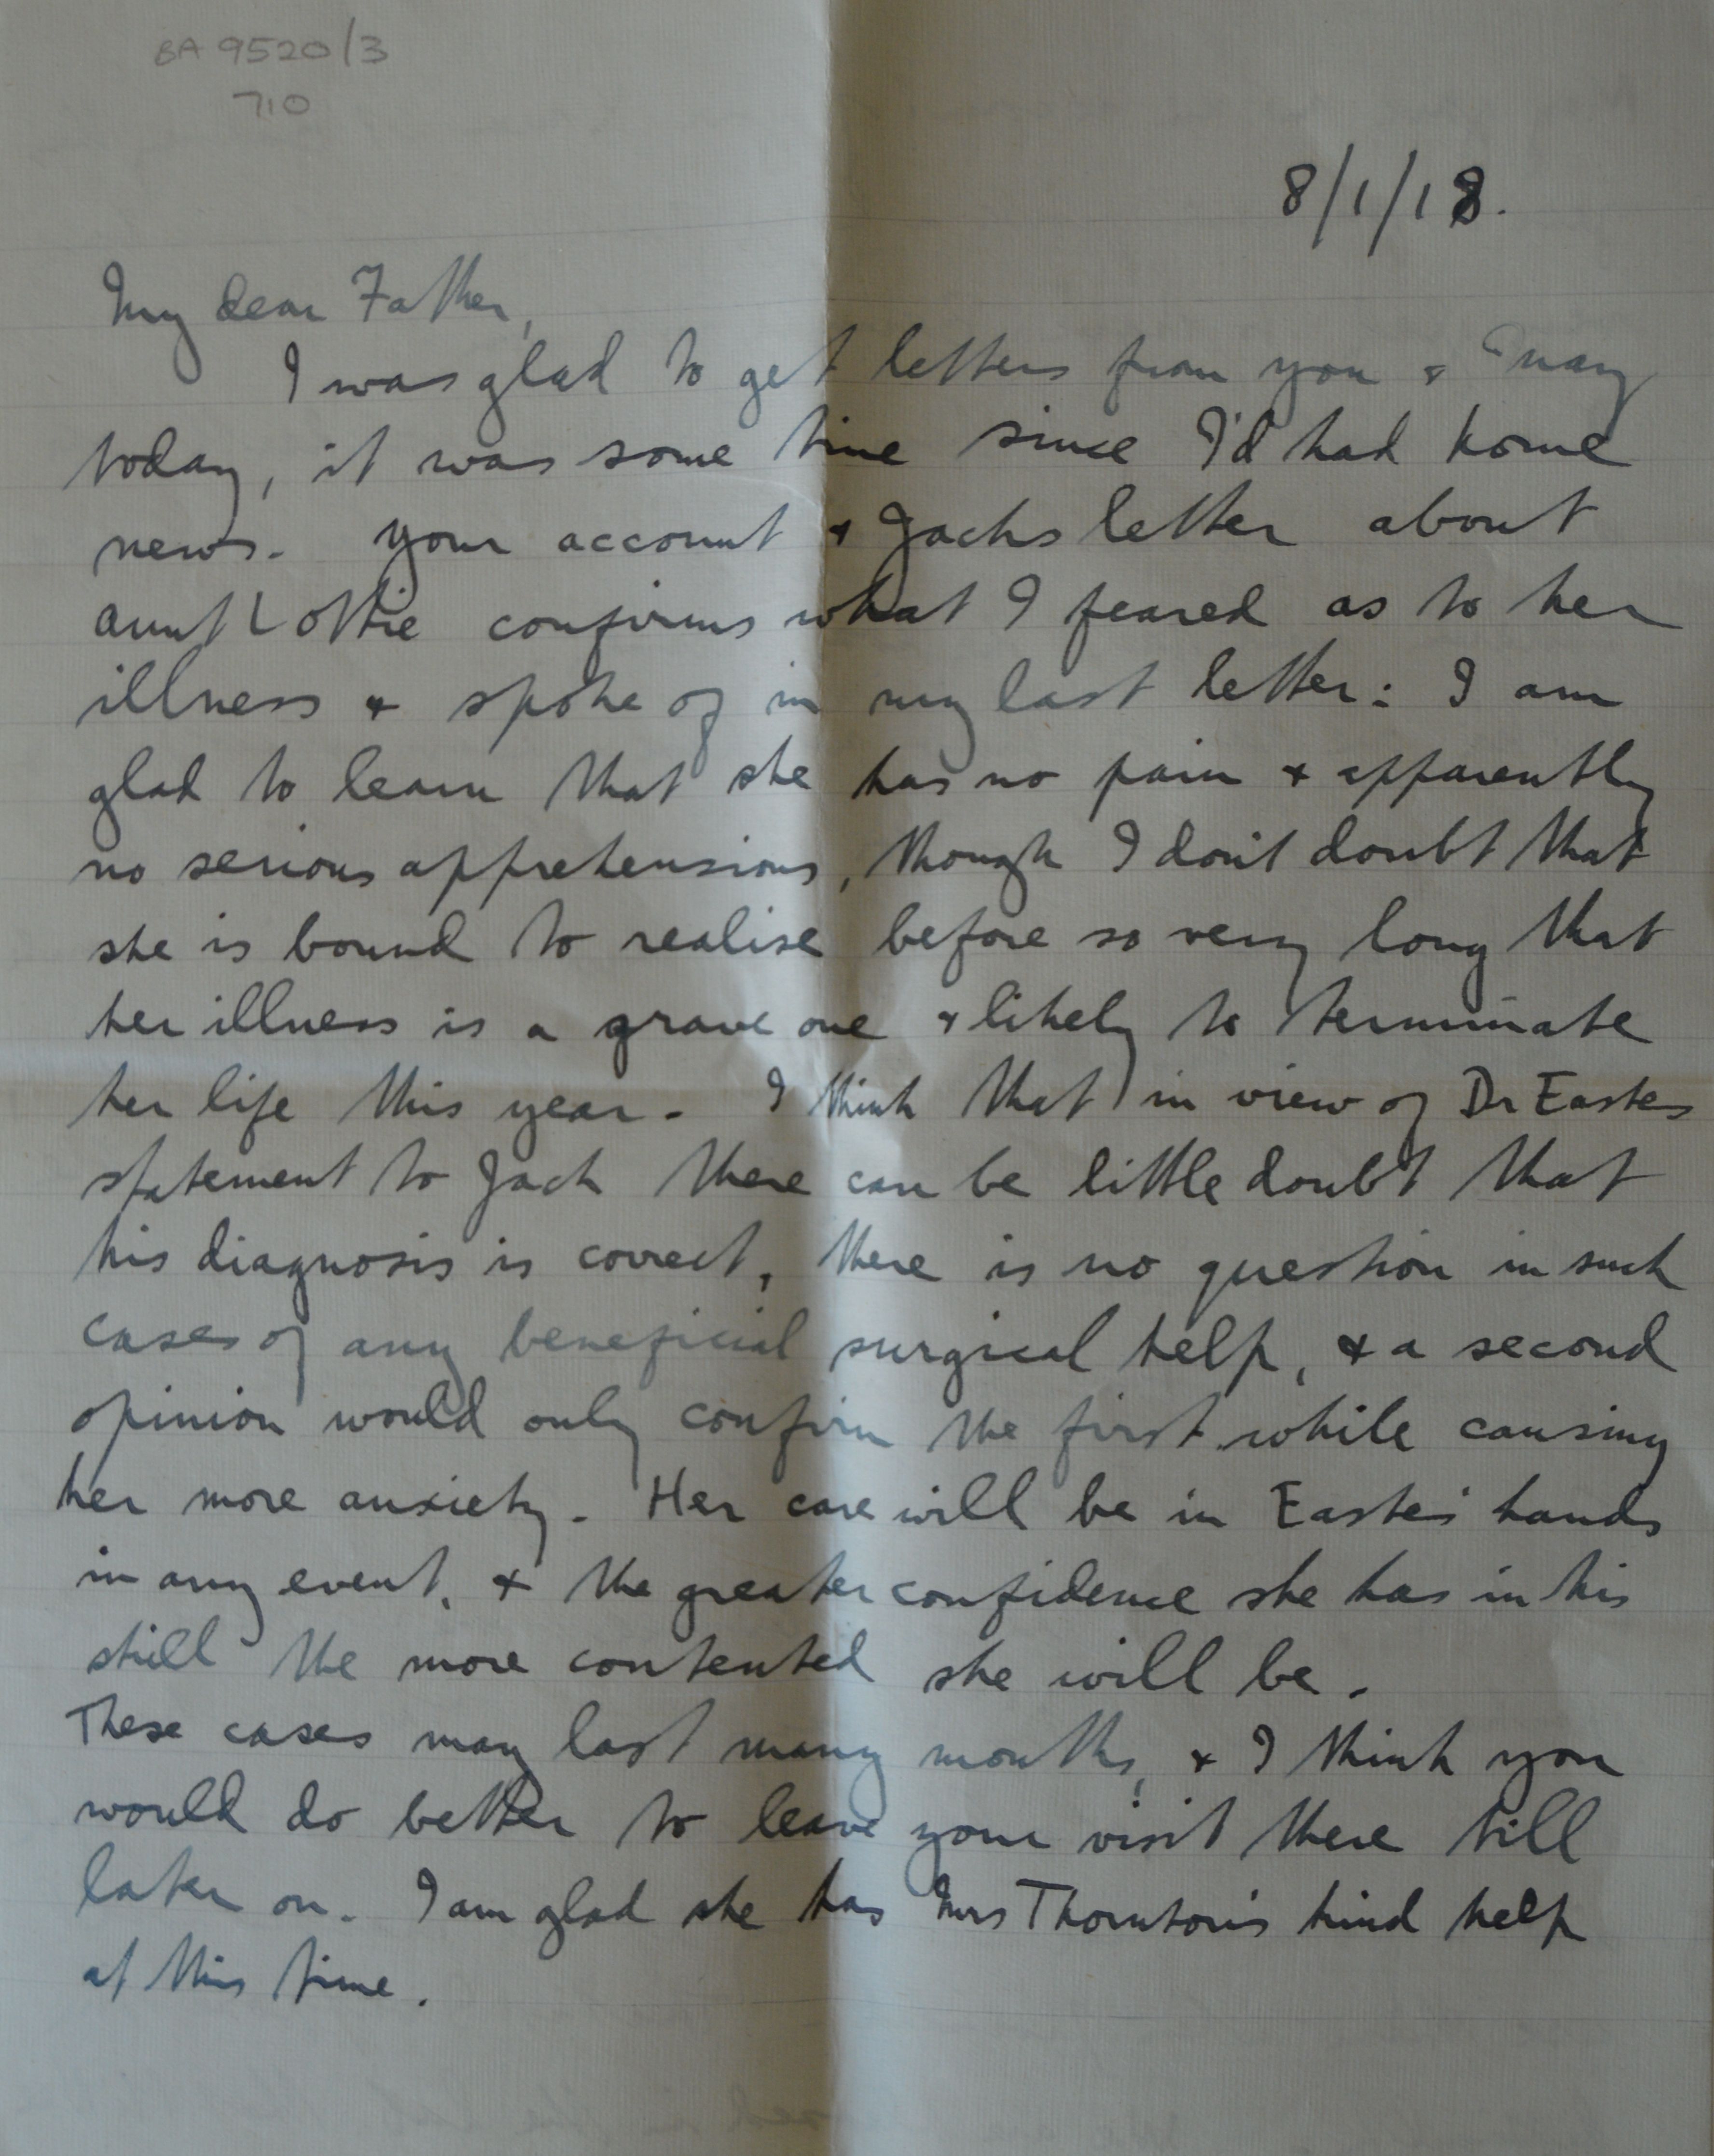 BA 9520/3
710
8/1/18.
My dear Father,
I was glad to get letters from you & May
today, it was some time since I'd had home
news. Your account & Jacks letter about
aunt Lottie confirms what I feared as to her
illness & spoke of in my last letter: I am
glad to learn that she has no pain & apparently
no serious apprehensions, though I don't doubt that
she is bound to realise before so very long that
her illness is a grave one & likely to terminate
her life this year. I think that in view of Dr Eastes
statement to Jack there can be little doubt that
his diagnosis is correct, there is no question in such
cases of any beneficial surgical help, & a second
opinion would only confirm the first while causing
her more anxiety. Her care will be in Easte's hands
in any event, & the greater confidence she has in his
skill the more contented she will be.
These cases may last many months, & I think you
would do better to leave your visit there till
later on. I am glad she has Mrs Thornton's kind help
at this time.